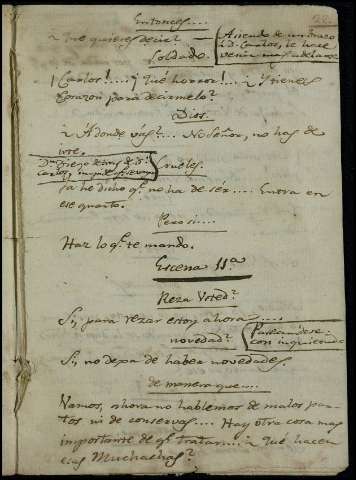 Entonces....
¿Que quieres decir?
Asiendo de un brazo
à D. Carlos, le hace
venir mas adelante
Soldado.
¡Carlos!.... ¡Que horror!.... ¿Y tienes
corazon para decirmelo?
Dios.
¿A donde vas?.... No Señor, no has de
irte.
Dn. Diego detras de Dn.
Carlos,
Crueles.
Ya he dicho qe. no ha de ser.... Entra en
ese quarto.
Pero si....
Haz lo qe. te mando.
Escena 11.a
Reza Usted?
Si, para rezar estoy ahora....
novedad?
Paseandose
con inquietud
Si, no dexa de haber novedades.
de manera que....
Vamos, ahora no hablemos de malos par-
tos ni de conservas.... Hay otra cosa mas
importante de qe. tratar.... ¿Que hacen
esas Muchachas?